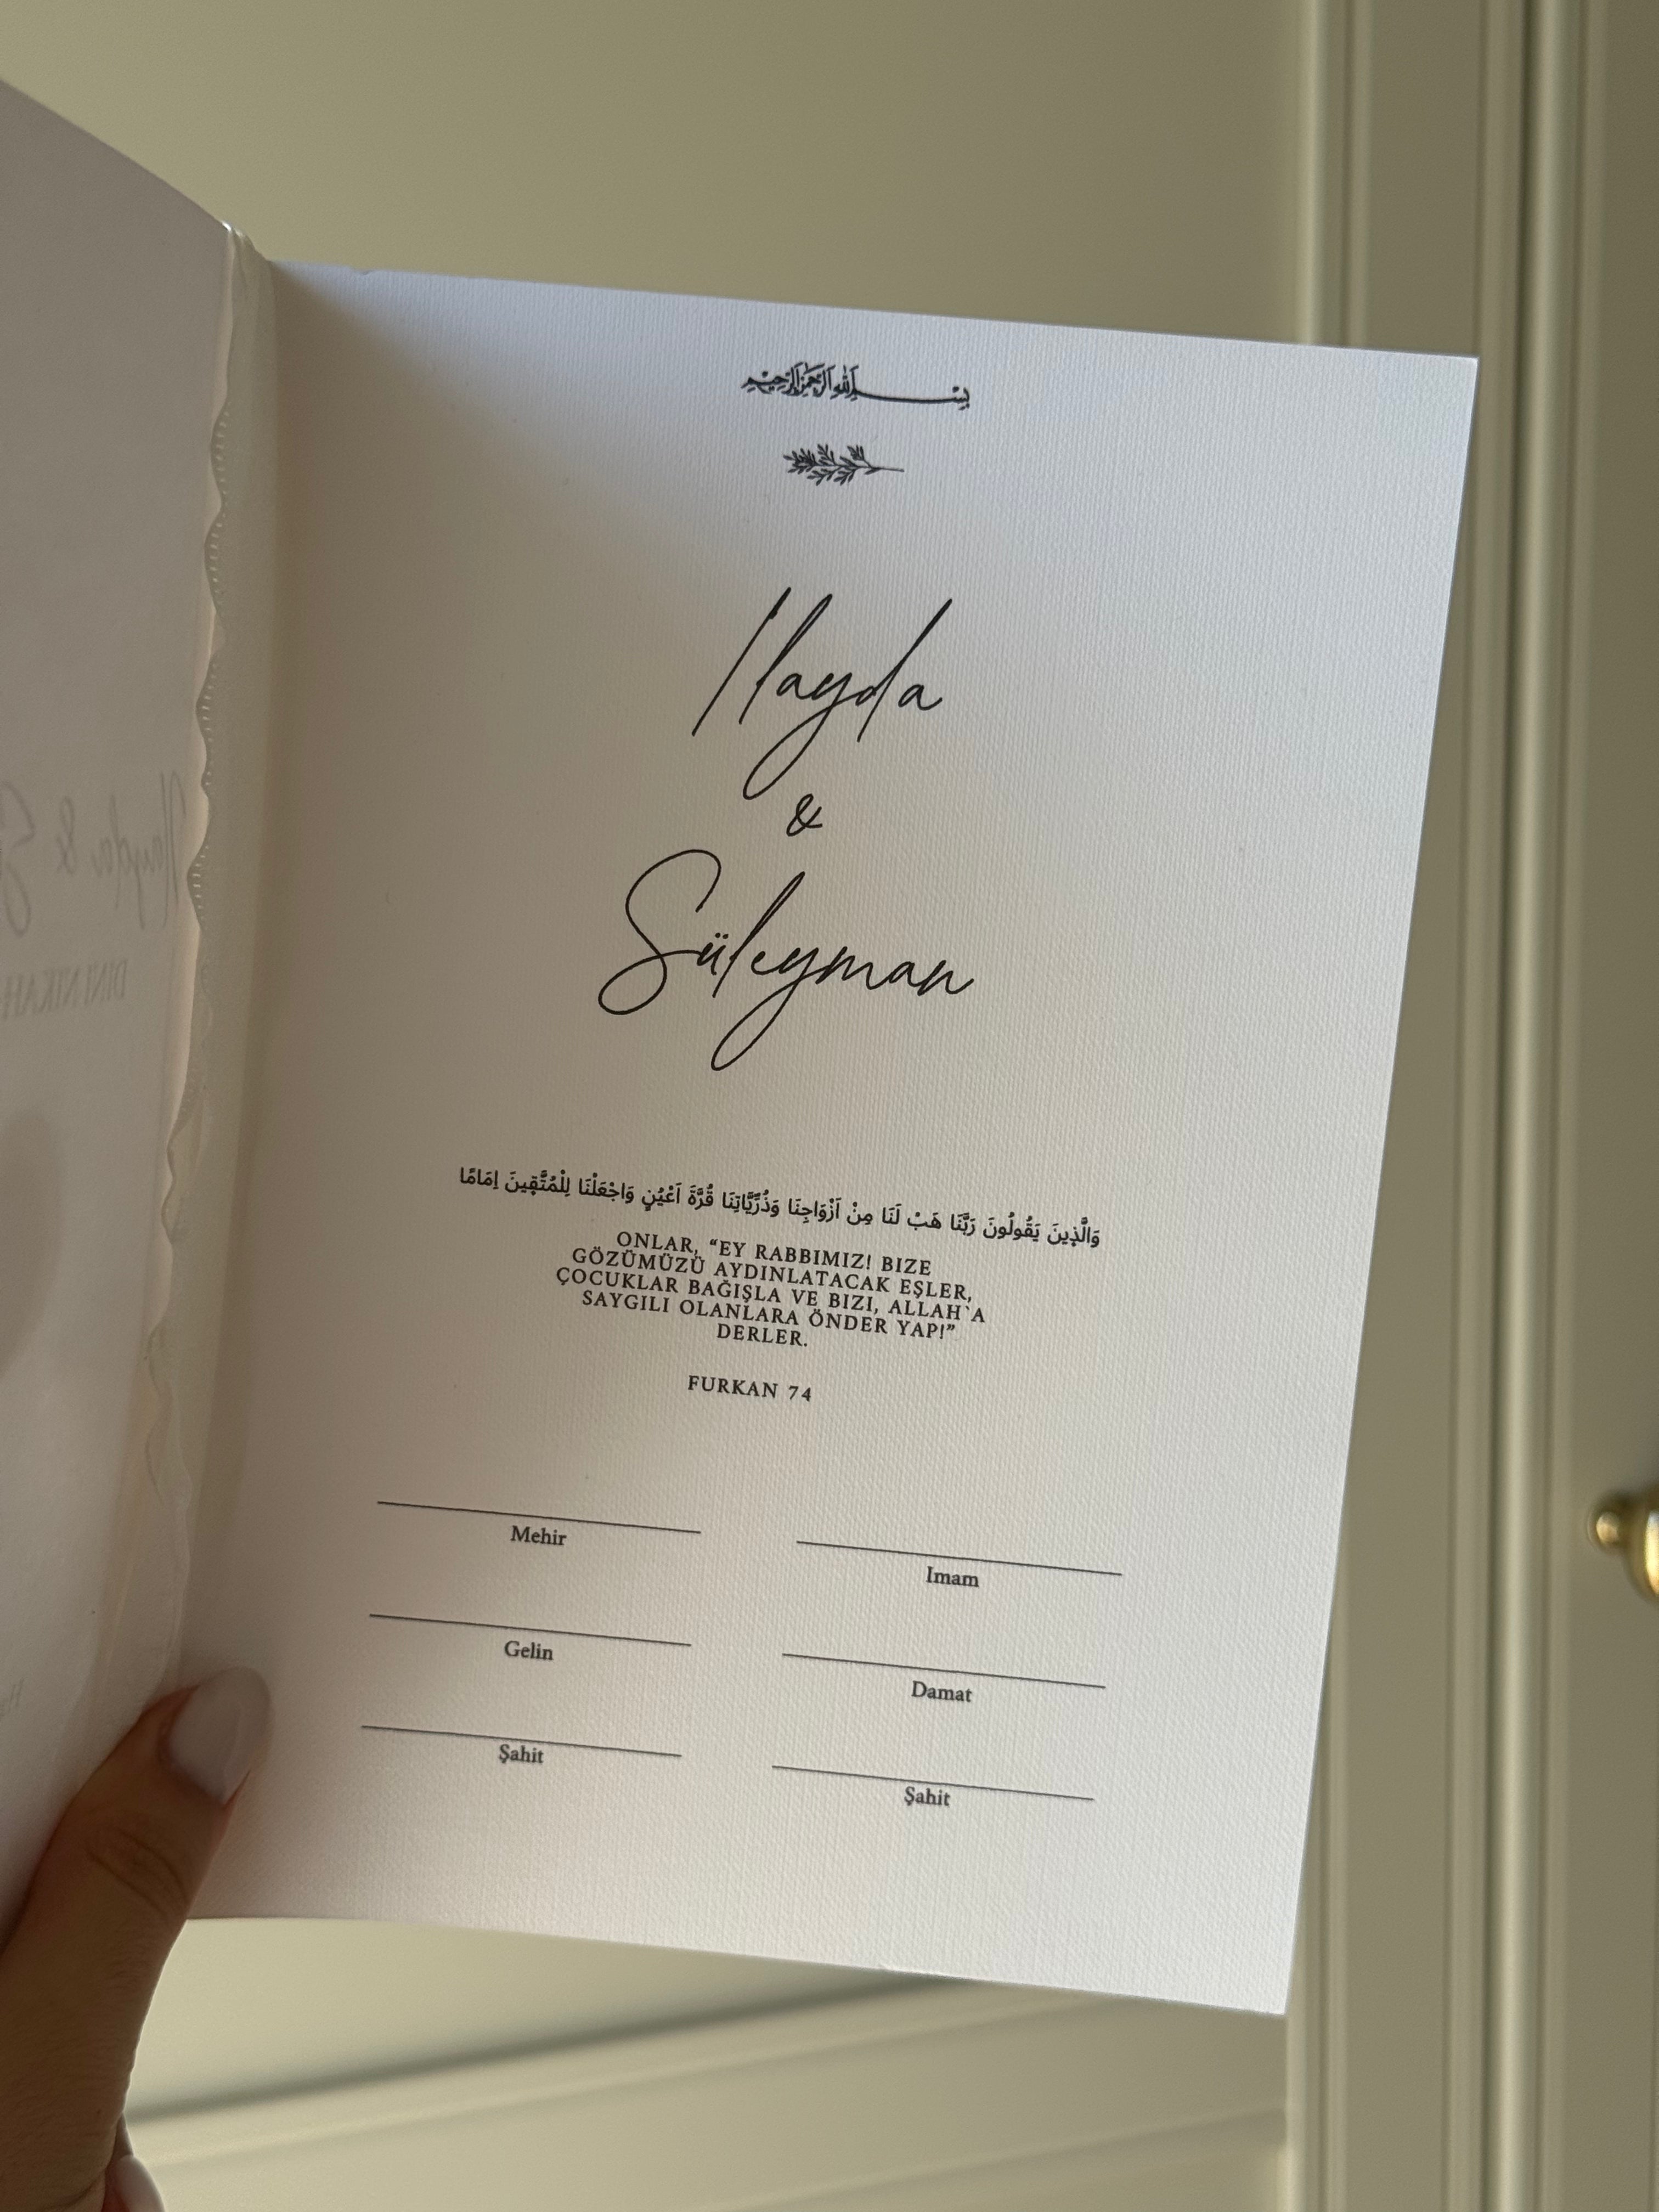 بِسْمِ اللهِ الرَّحْمٰنِ الرَّحِيمِ
Ilayda
&
Süleyman
وَالَّذ۪ينَ يَقُولُونَ رَبَّنَا هَبْ لَنَا مِنْ اَزْوَاجِنَا وَذُرِّيَّاتِنَا قُرَّةَ اَعْيُنٍ وَاجْعَلْنَا لِلْمُتَّق۪ينَ اِمَامًا
ONLAR, “EY RABBIMIZ! BIZE
GÖZÜMÜZÜ AYDINLATACAK EŞLER,
ÇOCUKLAR BAĞIŞLA VE BIZI, ALLAH`A
SAYGILI OLANLARA ÖNDER YAP!”
DERLER.
FURKAN 74
Mehir
Imam
Gelin
Damat
Şahit
Şahit
Ilayda & S
DINI NIKAH